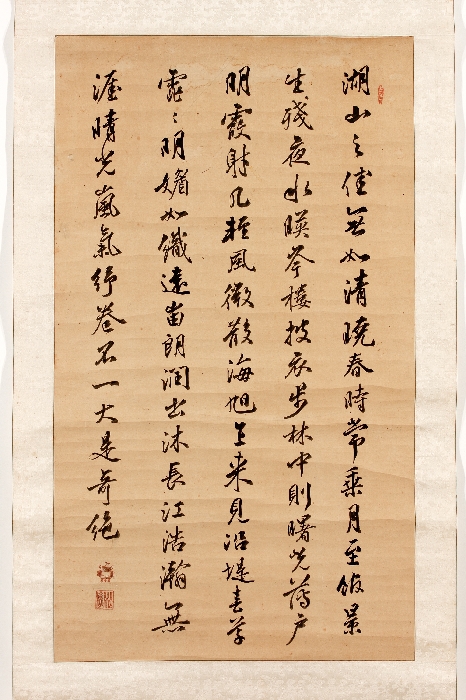 湖山之佳無如清曉春時常乘月至館景
生殘夜水暎岑樓披衣步林中則曙光薄戶
明霞射几輕風微散海旭乍来見沿堤春草
霏〻明媚如織遠岫朗潤出沐長江浩瀚無
涯晴光嵐氣紓卷不一大是奇絶